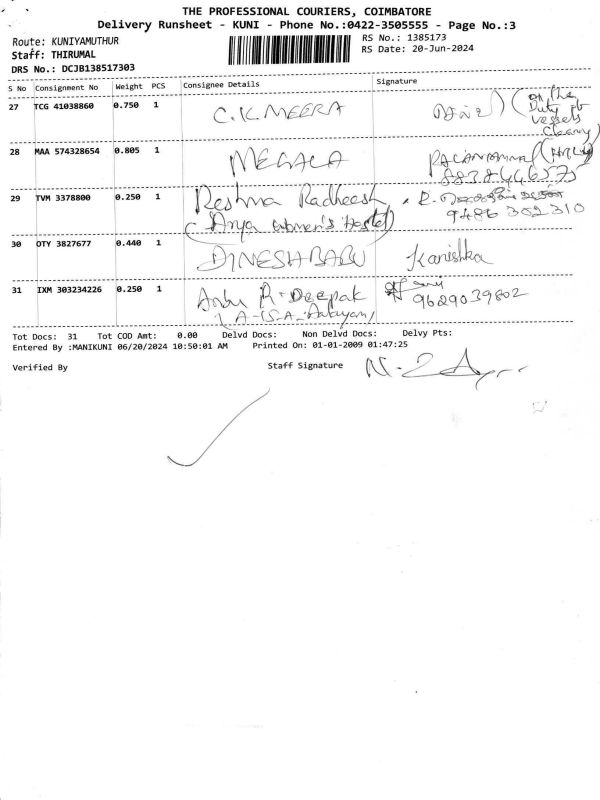 THE PROFESSIONAL COURIERS, COIMBATORE
Delivery Runsheet - KUNI - Phone No.:0422-3505555 - Page No.:3
Route: KUNIYAMUTHUR
RS No.: 1385173
Staff: THIRUMAL
RS Date: 20-Jun-2024
DRS No.: DCJB138517303
S No Consignment No Weight PCS Consignee Details Signature
27 TCG 41038860 0.750 1 C.K.MEERA
on the
Duty
vessels
28 MAA 574328654 0.805 1 MEGALA
29 TVM 3378800 0.250 1 Reshma Radheesh R.
(Anya women's Hostel) 9486 302310
30 OTY 3827677 0.440 1 DINESHBABU Kanishka
31 IXM 303234226 0.250 1 Anbu R. Deepak
9629039802
Tot Docs: 31 Tot COD Amt: 0.00 Delvd Docs: Non Delvd Docs: Delvy Pts:
Entered By :MANIKUNI 06/20/2024 10:50:01 AM Printed On: 01-01-2009 01:47:25
Verified By Staff Signature